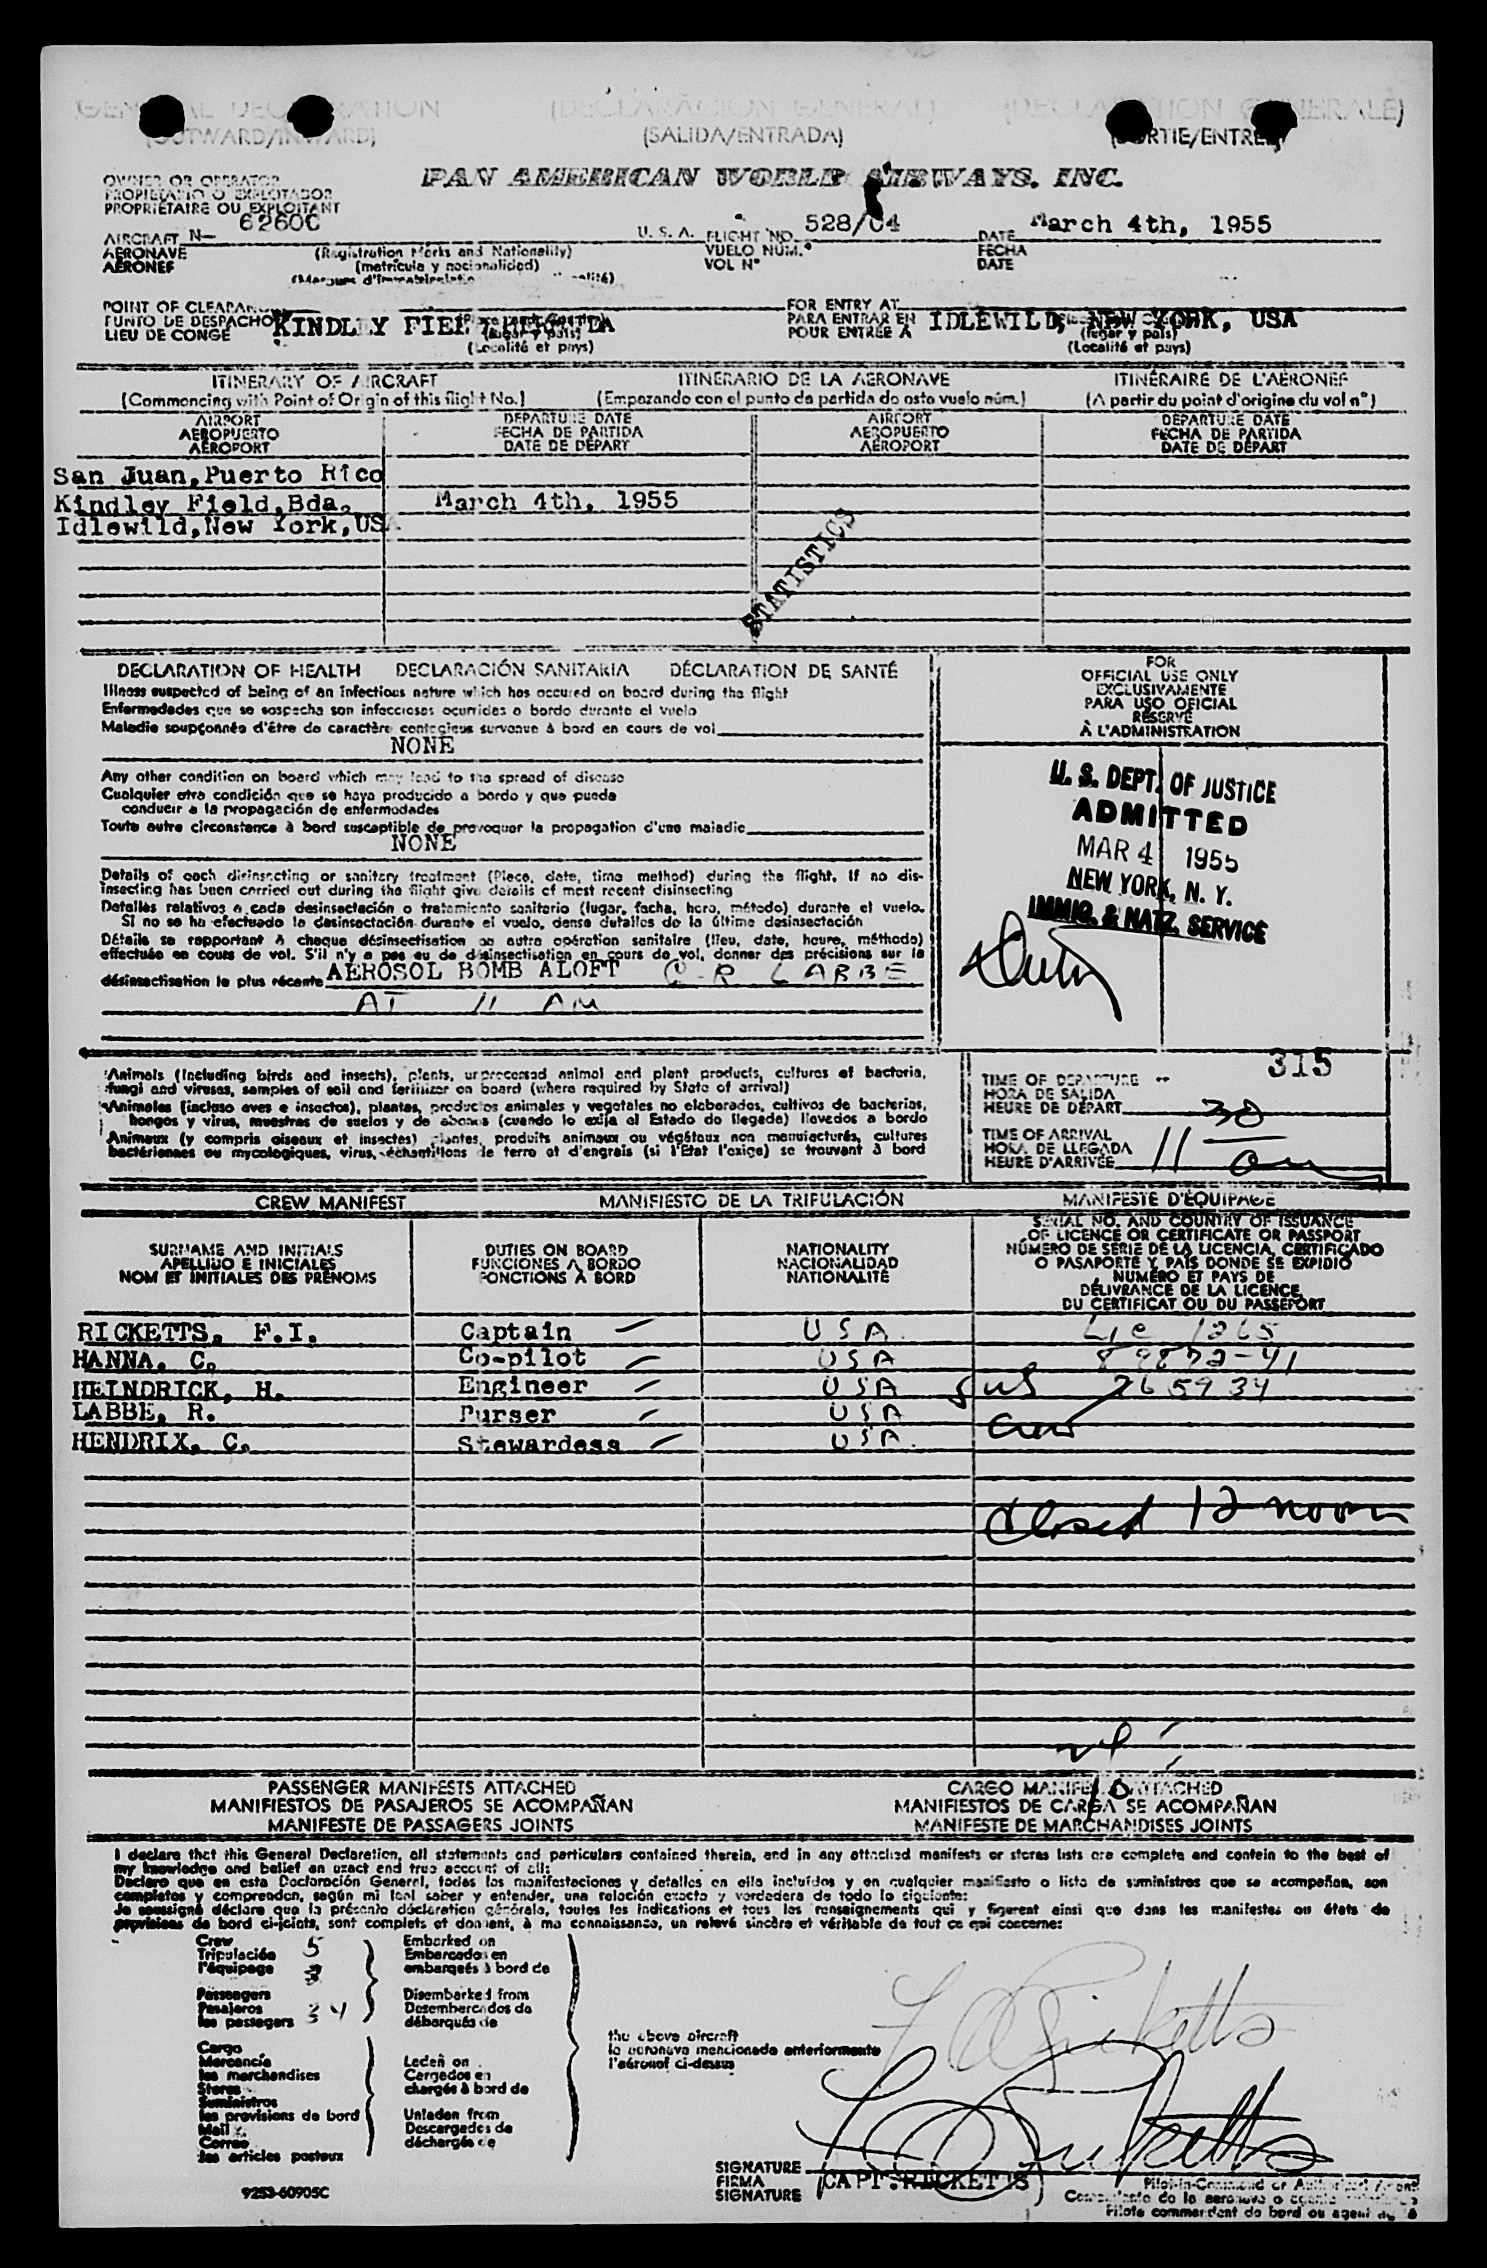 (GENERAL DECLARATION (DECLARACION GENERAL) (DECLARATION GENERALE)
(OUTWARD/INWARD) (SALIDA/ENTRADA) (SORTIE/ENTREE)
OWNER OR OPERATOR
PROPIETARIO O EXPLOTADOR
PROPRIÉTAIRE OU EXPLOITANT
PAN AMERICAN WORLD AIRWAYS, INC.
AIRCRAFT N- 6260C U. S. A. FLIGHT NO. 528/04 DATE March 4th, 1955
AERONAVE (Registration Marks and Nationality) VUELO NÚM. FECHA
AÉRONEF (matrícula y nacionalidad) VOL N° DATE
POINT OF CLEARANCE FOR ENTRY AT
PUNTO DE DESPACHO KINDLEY FIELD, BERMUDA PARA ENTRAR EN IDLEWILD, NEW YORK, USA
LIEU DE CONGÉ (lugar y país) POUR ENTRÉE À (lugar y país)
(Localité et pays) (Localité et pays)
ITINERARY OF AIRCRAFT ITINERARIO DE LA AERONAVE ITINÉRAIRE DE L'AÉRONEF
(Commencing with Point of Origin of this flight No.) (Empezando con el punto de partida de este vuelo núm.) (A partir du point d'origine du vol n°)
AIRPORT DEPARTURE DATE AIRPORT DEPARTURE DATE
AEROPUERTO FECHA DE PARTIDA AEROPUERTO FECHA DE PARTIDA
AÉROPORT DATE DE DÉPART AÉROPORT DATE DE DÉPART
San Juan,Puerto Rico
Kindley Field,Bda. March 4th, 1955
Idlewild,New York,USA
STATISTICS
DECLARATION OF HEALTH DECLARACIÓN SANITARIA DÉCLARATION DE SANTÉ
Illness suspected of being of an infectious nature which has occured on board during the flight
Enfermedades que se sospecha son infecciosas ocurridas a bordo durante el vuelo
Maladie soupçonnée d'être de caractère contagieux survenue à bord en cours de vol
NONE
Any other condition on board which may lead to the spread of disease
Cualquier otra condición que se haya producido a bordo y que pueda
conducir a la propagación de enfermedades
Toute autre circonstance à bord susceptible de provoquer la propagation d'une maladie
NONE
Details of each disinsecting or sanitary treatment (Place, date, time method) during the flight. If no dis-
insecting has been carried out during the flight give details of most recent disinsecting
Detalles relativos a cada desinsectación o tratamiento sanitario (lugar, fecha, hora, método) durante el vuelo.
Si no se ha efectuado la desinsectación durante el vuelo, dense detalles de la última desinsectación
Détails se rapportant à chaque désinsectisation ou autre opération sanitaire (lieu, date, heure, méthode)
effectuée en cours de vol. S'il n'y a pas eu de désinsectisation en cours de vol, donner des précisions sur la
désinsectisation la plus récente AEROSOL BOMB ALOFT R LABBE
AT 11 AM
FOR
OFFICIAL USE ONLY
EXCLUSIVAMENTE
PARA USO OFICIAL
RÉSERVÉ
À L'ADMINISTRATION
U. S. DEPT. OF JUSTICE
ADMITTED
MAR 4 1955
NEW YORK, N. Y.
IMMIG. & NATZ. SERVICE
Animals (including birds and insects), plants, unprocessed animal and plant products, cultures of bacteria,
fungi and viruses, samples of soil and fertilizer on board (where required by State of arrival)
Animales (incluso aves e insectos), plantas, productos animales y vegetales no elaborados, cultivos de bacterias,
hongos y virus, muestras de suelos y de abonos (cuando lo exija el Estado de llegada) llevados a bordo
Animaux (y compris oiseaux et insectes) plantes, produits animaux ou végétaux non manufacturés, cultures
bactériennes ou mycologiques, virus, échantillons de terre et d'engrais (si l'État l'exige) se trouvant à bord
315
TIME OF DEPARTURE
HORA DE SALIDA
HEURE DE DÉPART
TIME OF ARRIVAL
HORA DE LLEGADA
HEURE D'ARRIVÉE 11 30 am
CREW MANIFEST MANIFIESTO DE LA TRIPULACIÓN MANIFESTE D'ÉQUIPAGE
SURNAME AND INITIALS
APELLIDO E INICIALES
NOM ET INITIALES DES PRÉNOMS
DUTIES ON BOARD
FUNCIONES A BORDO
FONCTIONS À BORD
NATIONALITY
NACIONALIDAD
NATIONALITÉ
SERIAL NO. AND COUNTRY OF ISSUANCE
OF LICENCE OR CERTIFICATE OR PASSPORT
NÚMERO DE SERIE DE LA LICENCIA, CERTIFICADO
O PASAPORTE Y PAÍS DONDE SE EXPIDIÓ
NUMÉRO ET PAYS DE
DÉLIVRANCE DE LA LICENCE,
DU CERTIFICAT OU DU PASSEPORT
RICKETTS, F.I. Captain USA Lic 1265
HANNA, C. Co-pilot USA
HEINDRICK, H. Engineer USA
LABBE, R. Purser USA Crew
HENDRIX, C. Stewardess USA
Closed 12 noon
PASSENGER MANIFESTS ATTACHED CARGO MANIFESTS ATTACHED
MANIFIESTOS DE PASAJEROS SE ACOMPAÑAN MANIFIESTOS DE CARGA SE ACOMPAÑAN
MANIFESTE DE PASSAGERS JOINTS MANIFESTE DE MARCHANDISES JOINTS
I declare that this General Declaration, all statements and particulars contained therein, and in any attached manifests or stores lists are complete and contein to the best of
my knowledge and belief an exact and true account of all:
Declaro que en esta Declaración General, todas las manifestaciones y detalles en ella incluídos y en cualquier manifiesto o lista de suministros que se acompañan, son
completos y comprenden, según mi leal saber y entender, una relación exacta y verdadera de todo lo siguiente:
Je soussigné déclare que la présente déclaration générale, toutes les indications et tous les renseignements qui y figurent ainsi que dans les manifestes ou états de
provisions de bord ci-joints, sont complets et donnent, à ma connaissance, un relevé sincère et véritable de tout ce qui concerne:
Crew 5 Embarked on
Tripulación Embarcados en
l'équipage embarqués à bord de
Passengers Disembarked from
Pasajeros 34 Desembarcados de
les passagers débarqués de
Cargo
Mercancía Laden on
les marchandises Cargados en
Stores chargés à bord de
Suministros
les provisions de bord Unladen from
Mail Descargados de
Correo déchargés de
les articles postaux
the above aircraft
la aeronave mencionada anteriormente
l'aéronef ci-dessus
F I Ricketts
F I Ricketts
SIGNATURE
FIRMA (CAPT. RICKETTS)
SIGNATURE
Pilot-in-Command or Authorized Agent
Comandante de la aeronave o agente
Pilote commandant de bord ou agent
9253-60905C